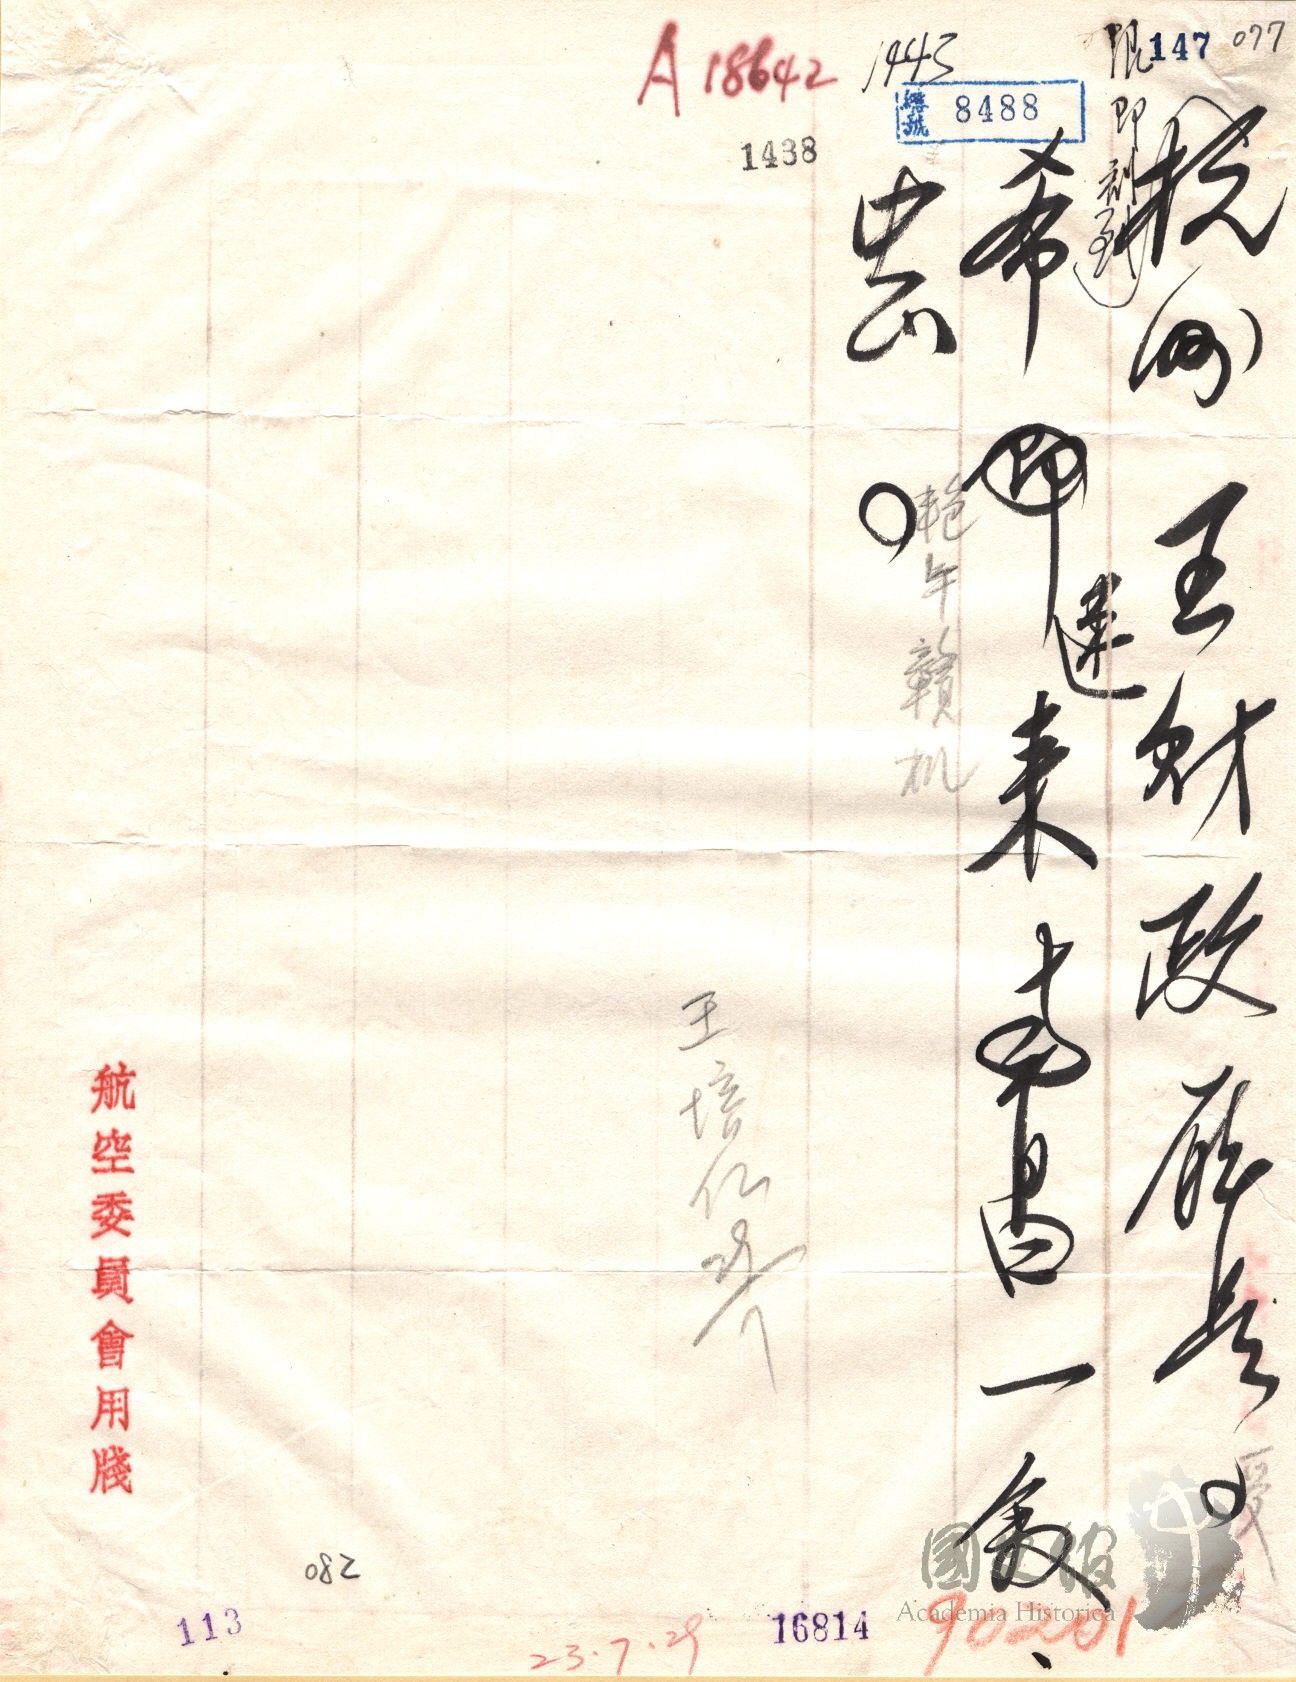 077
147
限
即刻到
杭州王財政廳長。
希即速來南昌一敘、
中正
。
1443
總號 8488
A 18642
1438
艳午贛机
王培仁
航空委員會用牋
082
113
23.7.29
16814
90201
國史館
Academia Historica